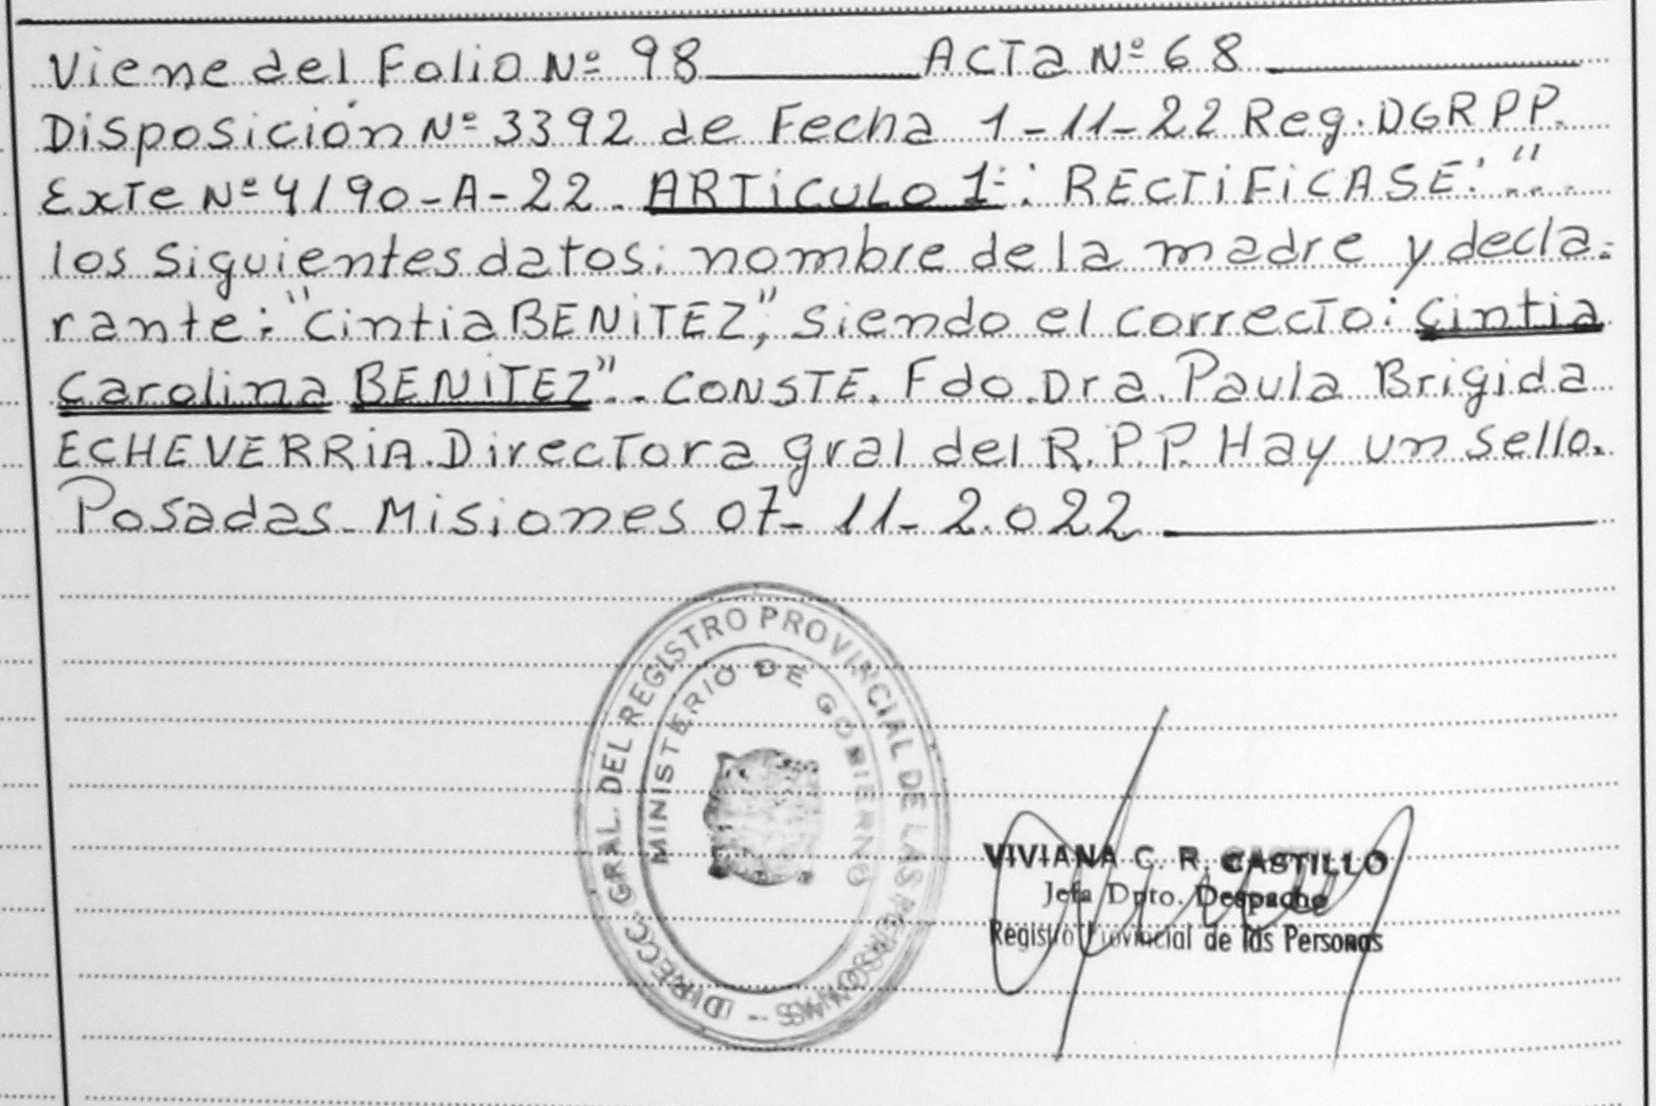 Viene del Folio Nº 98 ACTA Nº 68
Disposición Nº 3392 de Fecha 1-11-22 Reg. DGRPP.
Exte Nº 4190-A-22. ARTiCULO 1º: RECTiFiCASE: "...
los siguientes datos: nombre de la madre y decla-
rante: "Cintia BENiTEZ", siendo el correcto: Cintia
Carolina BENiTEZ".. CONSTE. Fdo. Dra. Paula Brigida
ECHEVERRiA. Directora gral del R.P.P. Hay un sello.
Posadas. Misiones 07-11-2.022
DIRECC. GRAL. DEL REGISTRO PROVINCIAL DE LAS PERSONAS --
MINISTERIO DE GOBIERNO
VIVIANA C. R. CASTILLO
Jefa Dpto. Despacho
Registro Provincial de las Personas